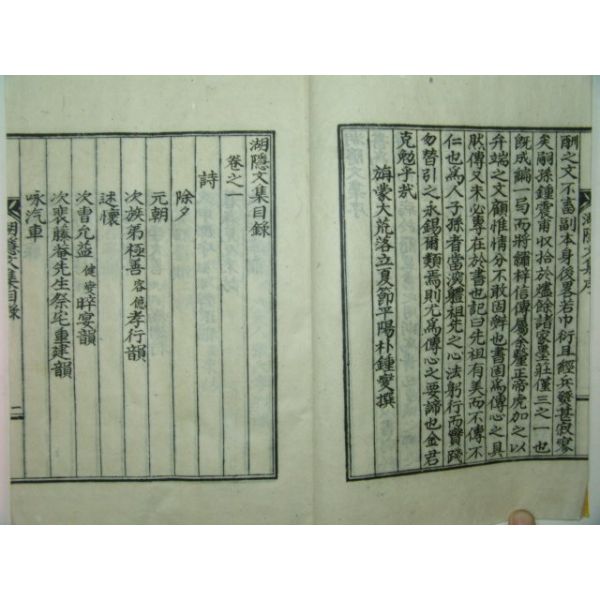 酬之文不啻副本身後畧若巾衍且經兵燹甚寂寥
矣嗣孫鍾震甫收拾於燼餘諸家墨莊僅三之一也
旣成編一局而將繡梓信傳屬余釐正帝虎加之以
弁端之文顧惟情分不敢固辭也書固爲傳心之具
然傳又未必專在於書也記曰先祖有美而不傳不
仁也爲人子孫者當溯體祖先之心法躬行而實踐
勿替引之永錫爾類焉則尤爲傳心之要諦也金君
克勉乎哉
旃蒙大荒落立夏節平陽朴鍾燮撰
湖隱文集序
湖隱文集目録
卷之一
詩
除夕
元朝
次族弟極善容億孝行韻
述懷
次曺允益健燮晬宴韻
次裴藤庵先生祭宅重建韻
咏汽車
湖隱文集目録
一